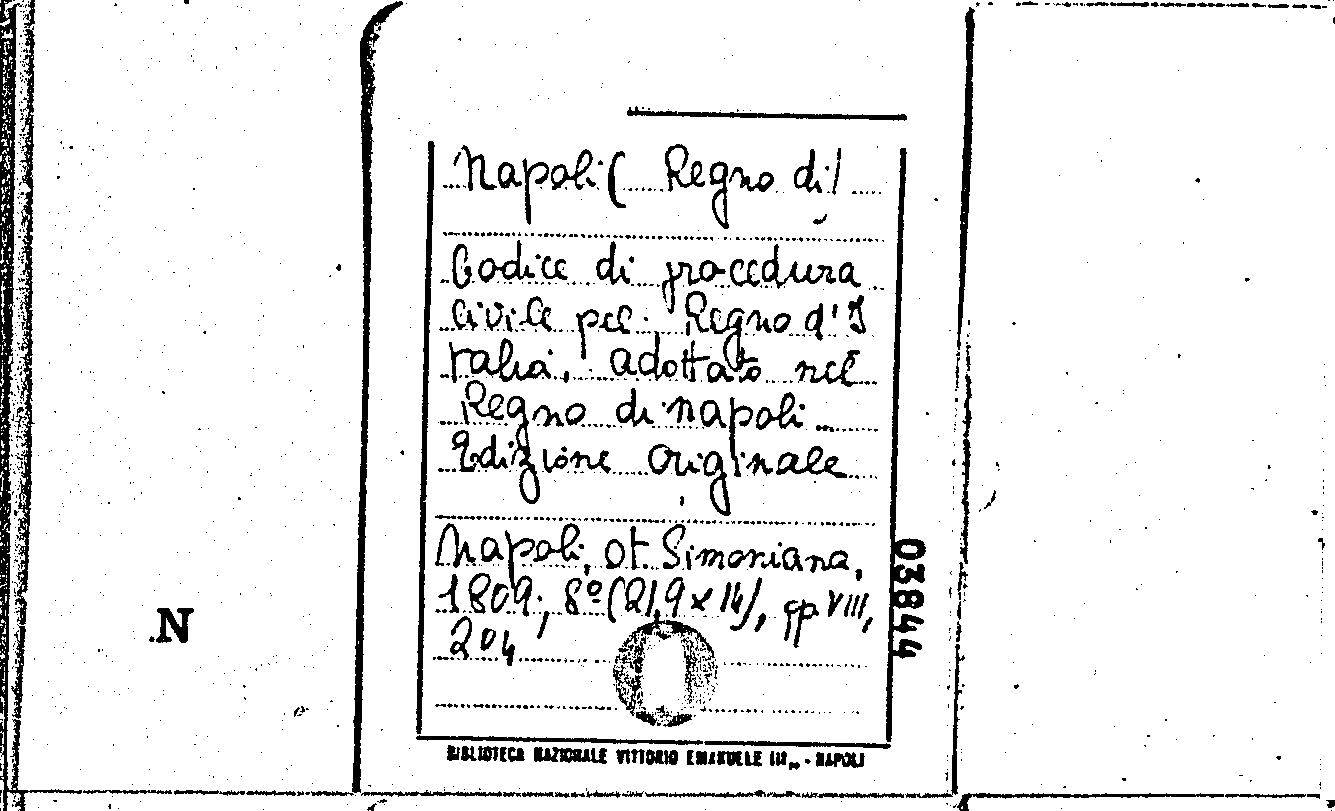 Napoli ( Regno di )
Codice di procedura
civile pel Regno d'I
talia, adottato nel
Regno di Napoli...
Edizione Originale
Napoli, st. Simoniana,
1809, 8º (21,9 x 14), pp VIII,
204
03844
N
BIBLIOTECA NAZIONALE VITTORIO EMANUELE III,, - NAPOLI